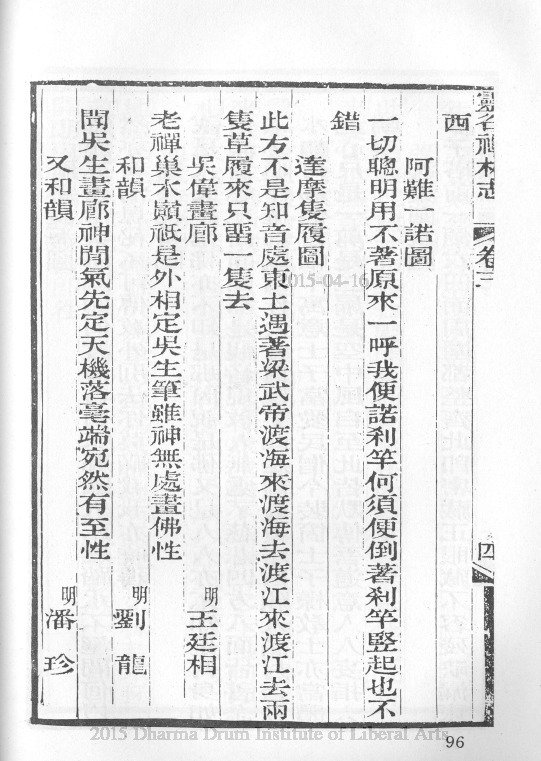 靈谷禪林志 卷三 四
西
阿難一諾圖
一切聰明用不著原來一呼我便諾剎竿何須便倒著剎竿竪起也不
錯
達摩隻履圖
此方不是知音處東土遇著梁武帝渡海來渡海去渡江來渡江去兩
隻草履來只畱一隻去
吳偉畫廊 明王廷相
老禪巢木嶺祇是外相定吳生筆雖神無處畫佛性
和韻 明劉龍
聞吳生畫廊神閒氣先定天機落毫端宛然有至性
又和韻 明潘珍
2015-04-16
2015 Dharma Drum Institute of Liberal Arts
96